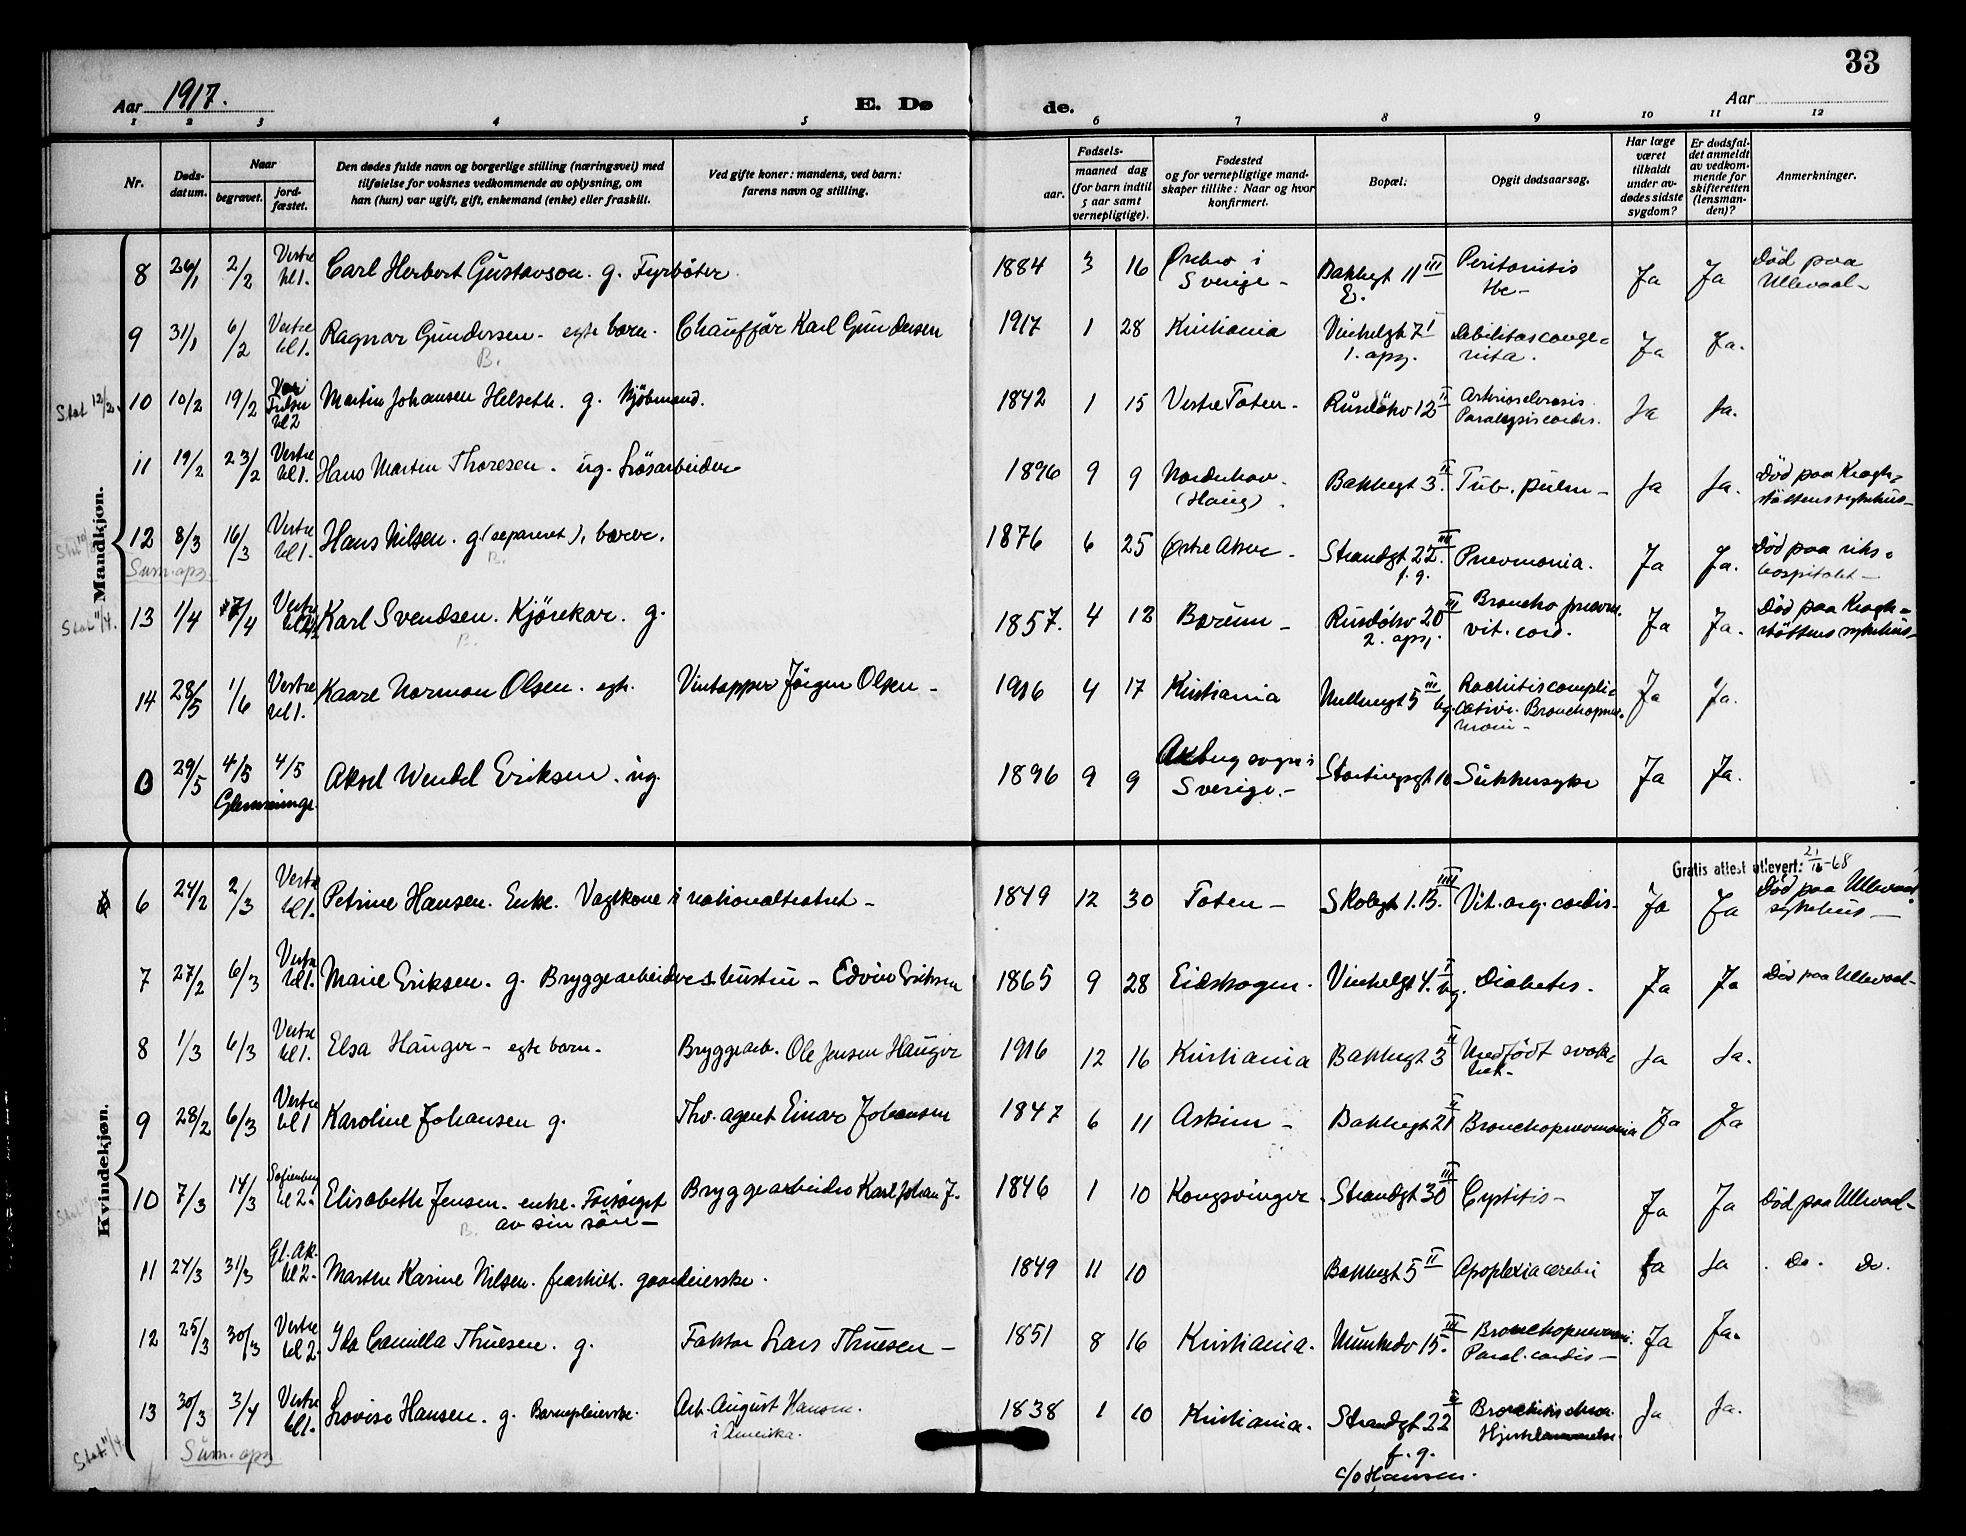 33
Aar 1917.
E. Dø
de.
Aar
1 2 3 4 5 6 7 8 9 10 11 12
Nr.
Døds-
datum.
Naar
begravet.
jord-
fæstet.
Den dødes fulde navn og borgerlige stilling (næringsvei) med
tilføielse for voksnes vedkommende av oplysning, om
han (hun) var ugift, gift, enkemand (enke) eller fraskilt.
Ved gifte koner: mandens, ved barn:
farens navn og stilling.
Fødsels-
aar.
maaned dag
(for barn indtil
5 aar samt
vernepligtige).
Fødested
og for vernepligtige mand-
skaper tillike: Naar og hvor
konfirmert.
Bopæl.
Opgit dødsaarsag.
Har læge
været
tilkaldt
under av-
dødes sidste
sygdom?
Er dødsfal-
det anmeldt
av vedkom-
mende for
skifteretten
(lensman-
den)?
Anmerkninger.
Mandkjøn.
8 26/1 2/2 Vestre kl 1. Carl Herbert Gustavson. g. Fyrböter 1884 3 16 Örebro i Sverige - Bakkegt 11 III Peritonitis tbc - Ja Ja Død paa Ullevaal -
9 31/1 6/2 Vestre kl 1. Ragnar Gundersen - egte barn. Chauffør Karl Gundersen 1917 1 28 Kristiania Vinkelgt 7 I 1. apg. Debilitas conge= nita. Ja Ja.
B.
Stat 12/2. 10 10/2 19/2 Vor Frelser kl 2 Martin Johansen Helseth. g. Kjöbmand. 1842 1 15 Vestre Toten - Rusdökv 12 II Arteriosclerosis. Paralysis cordis. Ja Ja.
11 19/2 23/2 Vestre kl 1. Hans Martin Thoresen. ug. Lösarbeider 1896 9 9 Norderhov. (Haug). Bakkegt 3. II Tub. pulm - Ja Ja. Død paa Krogh= støttens sykehus -
12 8/3 16/3 Vestre kl 1. Hans Nilsen. g (separert), bærer. 1876 6 25 Østre Aker - Strandgt 22. III f. g. Pnevmonia. Ja Ja. Død paa riks= hospitalet -
Sum. apg. B.
Stat 11/4. 13 1/4 7/4 Vestre Karl Svendsen. Kjörekar. g. 1857. 4 12 Bærum - Rusdökv 20 III 2. apg. Broncho pnevm. vit. cord. Ja Ja. Død paa Krogh= støttens sykehus -
B.
14 28/5 1/6 Vestre kl 1. Kaare Norman Olsen. egte. Vintapper Jörgen Olsen - 1916 4 17 Kristiania Munkegt 5 III Rachitis compli= Bronchopnev= moni - Ja Ja.
0 29/5 4/5 4/5 Aksel Wendel Eriksen. ug. 1896 9 9 sogn i Sverige. - Stortingsgt 10 Sukkersyke Ja Ja.
Kvindekjøn.
Gratis attest utlevert:
6 24/2 2/3 Vestre kl 1. Petrine Hansen. Enke. Vagtkone i nationalteatret - 1849 12 30 Toten - Skolegt 1.B. IIII Vit. org. cordis - Ja Ja Død paa Ullevaal sykehus -
7 27/2 6/3 Vestre kl 1. Marie Eriksen. g. Bryggearbeiders hustru - Edvin Eriksen 1865 9 28 Eidskogen. Vinkelgt 4. I bg. Diabetes. Ja Ja Død paa Ullevaal -
8 1/3 6/3 Vestre kl 1. Elsa Hauger - egte barn. Bryggearb. Ole Jensen Hauger 1916 12 16 Kristiania Bakkegt 3 II Medfödt svak= het - Ja Ja.
9 28/2 6/3 Vestre kl 1 Karoline Johansen g. Thv. agent Einar Johansen 1847 6 11 Askim - Bakkegt 21 II Bronchopnevmonia Ja Ja
10 7/3 14/3 Sofienberg kl 2. Elisabeth Jensen. enke. Forsörget av sin sön - Bryggearbeider Karl Johan J. 1846 1 10 Kongsvinger. Strandgt 30 III Cystitis - Ja Ja Død paa Ullevaal -
B.
11 24/3 31/3 Gl. Ak. kl 2 - Marthe Karine Nilsen. fraskilt. gaardeierske. 1849 11 10 Bakkegt 5 II Apoplexia cerebri Ja Ja . Do. Do.
12 25/3 30/3 Vestre kl 2. Ida Camilla Thuesen. g. Faktor Lars Thuesen - 1851 8 16 Kristiania. Munkedv 15. III Bronchopnevmoni. Paral. cordis - Ja Ja.
13 30/3 3/4 Vestre kl 1. Lovise Hansen. g. Barnepleierske. Arb. August Hansen. i Amerika. 1838 1 10 Kristiania. Strandgt 22 II f. g. c/o Hansen. Hjertelammelse. Ja Ja.
Stat. 11/4. Sum. apg